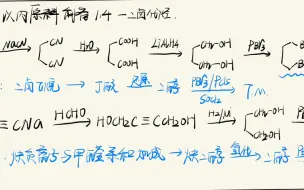 以内原料制备1,4-二卤代烃.
NaCN CN CN H₂O COOH COOH LiAlH4 CH₂-OH CH₂-OH PBr₃
: 二卤代烷 → 丁酸 还原 二醇 PBr₃/PCl₅ SOCl₂ T.M.
≡ CNa HCHO → HOH₂C C≡CCH₂OH H₂/Ni CH₂OH CH₂OH PBr
: 炔负离子与甲醛亲核加成 → 炔二醇 氢化 二醇